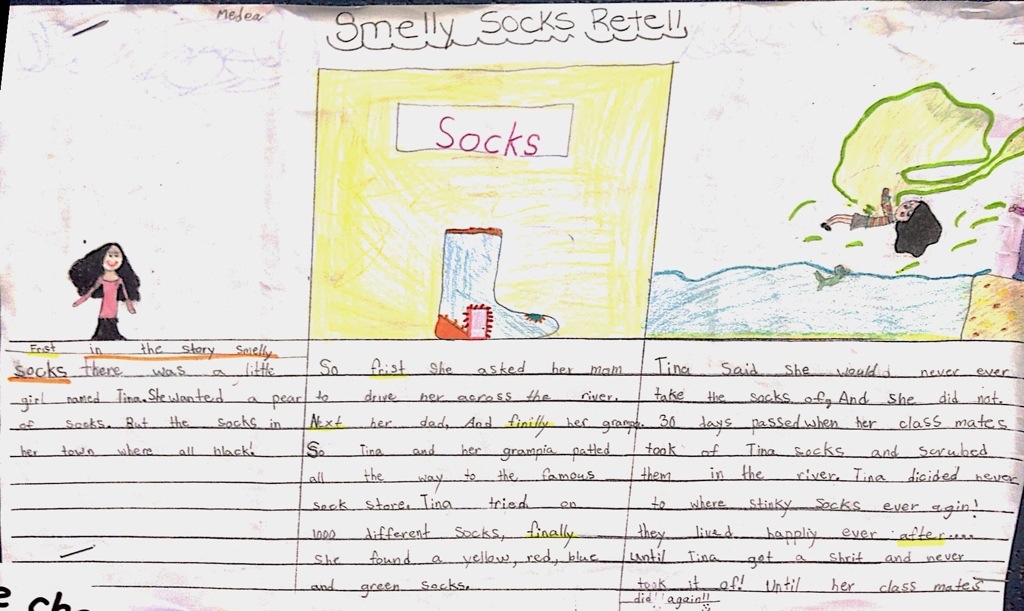 Medea
Smelly Socks Retell
Socks
Frist in the story Smelly
Socks there was a little
girl named Tina. She wanted a pear
of socks. But the socks in
her town where all black!
So frist she asked her mom
to drive her across the river.
Next her dad, And finilly her grampa.
So Tina and her grampia patled
all the way to the famous
sock store. Tina tried on
1000 different socks, finally
she found a yellow, red, blue
and green socks.
Tina said she would never ever
take the socks of, And she did not.
30 days passed when her class mates
took of Tina socks and scrubed
them in the river. Tina dicided never
to where stinky socks ever agin!
they lived happliy ever after....
until Tina got a shrit and never
took it of! Until her class mates
did!! again!!